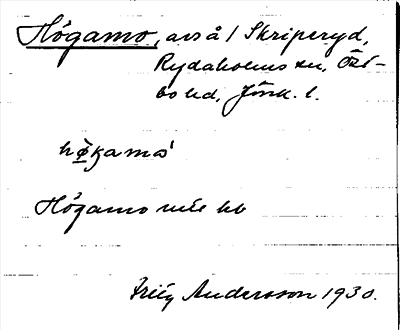 Högamo, avs å / Skriperyd,
Rydaholms sn, Öst-
bo hd, Jönk. l.
hø̄gamo
Högamo
Andersson 1930.